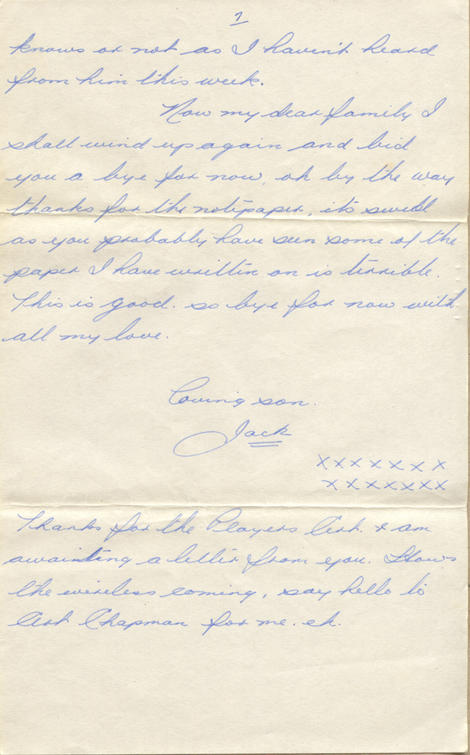 7
knows or not as I haven't heard
from him this week.
Now my dear family I
shall wind up again and bid
you a bye for now, oh by the way
thanks for the notepaper, it's swell
as you probably have seen some of the
paper I have written on is terrible.
This is good. so bye for now with
all my love.
Loving son.
Jack
xxxxxxx
xxxxxxx
Thanks for the Players Art. & am
awainting a letter from you. Hows
the wireless coming, say hello to
Art Chapman for me. eh.